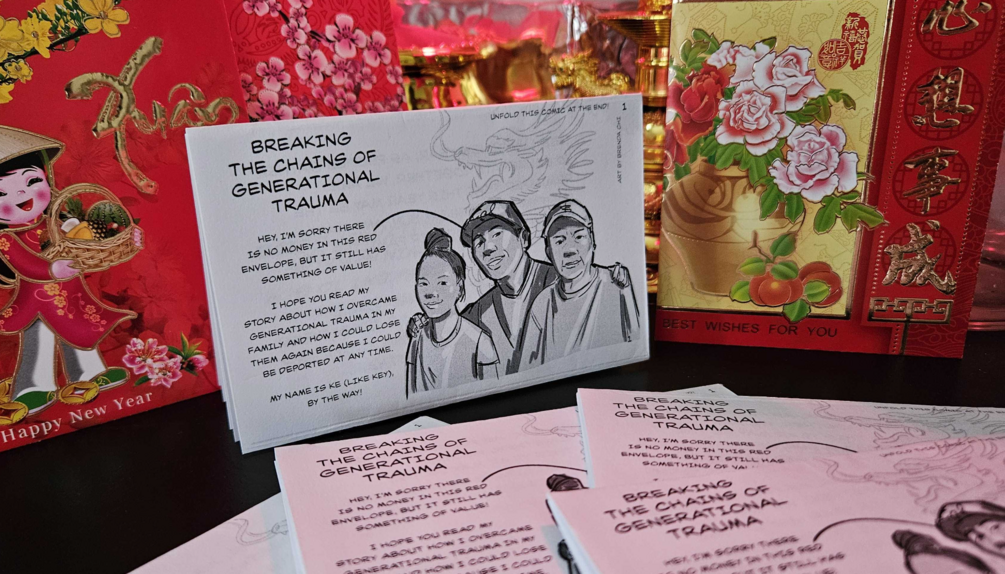 Xuân
Happy New Year
UNFOLD THIS COMIC AT THE END! 1
ART BY BRENDA CHI
BREAKING
THE CHAINS OF
GENERATIONAL
TRAUMA
HEY, I'M SORRY THERE
IS NO MONEY IN THIS RED
ENVELOPE, BUT IT STILL HAS
SOMETHING OF VALUE!
I HOPE YOU READ MY
STORY ABOUT HOW I OVERCAME
GENERATIONAL TRAUMA IN MY
FAMILY AND HOW I COULD LOSE
THEM AGAIN BECAUSE I COULD
BE DEPORTED AT ANY TIME.
MY NAME IS KE (LIKE KEY),
BY THE WAY!
心想事成
BEST WISHES FOR YOU
BREAKING
THE CHAINS OF
GENERATIONAL
TRAUMA
HEY, I'M SORRY THERE
IS NO MONEY IN THIS RED
ENVELOPE, BUT IT STILL HAS
SOMETHING OF VALUE!
I HOPE YOU READ MY
STORY ABOUT HOW I OVERCAME
GENERATIONAL TRAUMA IN MY
FAMILY AND HOW I COULD LOSE
BREAKING
THE CHAINS OF
GENERATIONAL
TRAUMA
HEY, I'M SORRY THERE
IS NO MONEY IN THIS RED
ENVELOPE, BUT IT STILL HAS
SOMETHING OF
BREAKING
THE CHAINS OF
GENERATIONAL
TRAUMA
HEY, I'M SORRY THERE
IS NO MONEY IN THIS RED
ENVELOPE, BUT IT STILL HAS